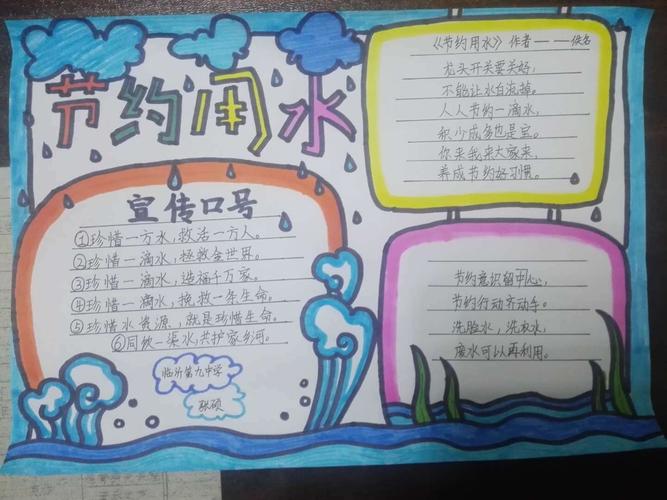 节约用水
宣传口号
①珍惜一方水，救活一方人。
②珍惜一滴水，拯救全世界。
③珍惜一滴水，造福千万家。
④珍惜一滴水，挽救一年生命。
⑤珍惜水资源，就是珍惜生命。
⑥同饮一渠水，共护家乡河。
临沂第九中学
张硕
《节约用水》作者——佚名
龙头开关要关好，
不能让水白流掉。
人人节约一滴水，
积少成多也是宝。
你来我来大家来，
养成节约好习惯。
节约意识留中心，
节约行动齐动手。
洗脸水，洗衣水，
废水可以再利用。